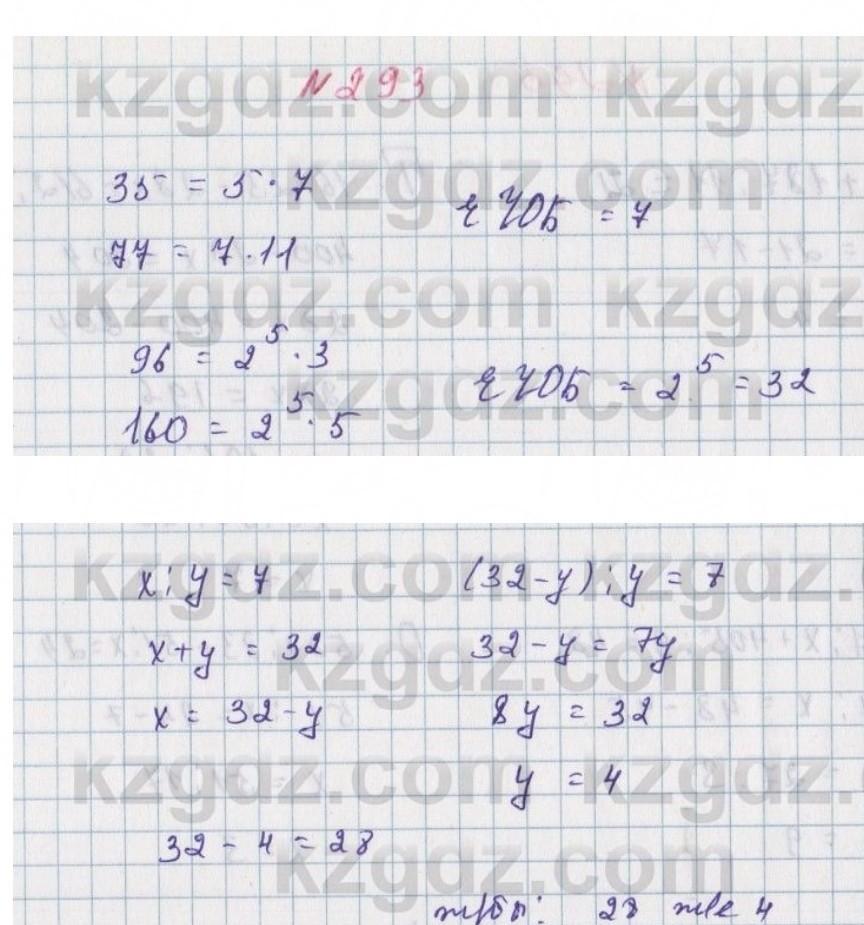 N 293
35 = 5 · 7
77 = 7 · 11
ЕҮОБ = 7
96 = 2⁵ · 3
160 = 2⁵ · 5
ЕҮОБ = 2⁵ = 32
x : y = 7
x + y = 32
x = 32 - y
32 - 4 = 28
(32 - y) : y = 7
32 - y = 7y
8y = 32
y = 4
ж/бы: 28 және 4
kzgdz.com